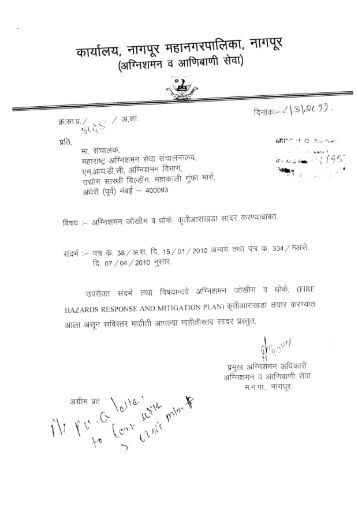 कार्यालय, नागपूर महानगरपालिका, नागपूर
(अग्निशमन व आणिबाणी सेवा)
दिनांक:-
क्र.सा.प्र./ / अ.शा.
प्रति,
मा. संचालक,
महाराष्ट्र अग्निशमन सेवा संचालनालय,
एम.आय.डी.सी, अग्निशमन विभाग,
उद्योग सारथी बिल्डींग, महाकाली गुंफा मार्ग,
अंधेरी (पूर्व) मंबई – 400093
विषय :– अग्निशमन जोखीम व धोके. कृतीआराखडा सादर करण्याबाबत.
संदर्भ :– पत्र क. 38/अ.स. दि. 15/01/2010 अन्वये तथा पत्र क. 334/मअसे.
दि. 07/04/2010 नुसार.
उपरोक्त संदर्भ तथा विषयान्वये अग्निशमन जोखीम व धोके, (FIRE
HAZARDS RESPONSE AND MITIGATION PLAN) कृतीआराखडा तयार करण्यात
आला असून सविस्तर माहीती आपल्या माहीतीस्तव सादर प्रस्तुत.
प्रमुख अग्निशमन अधिकारी
अग्निशमन व आणिबाणी सेवा
म.न.पा., नागपूर.
अग्रीम प्रत